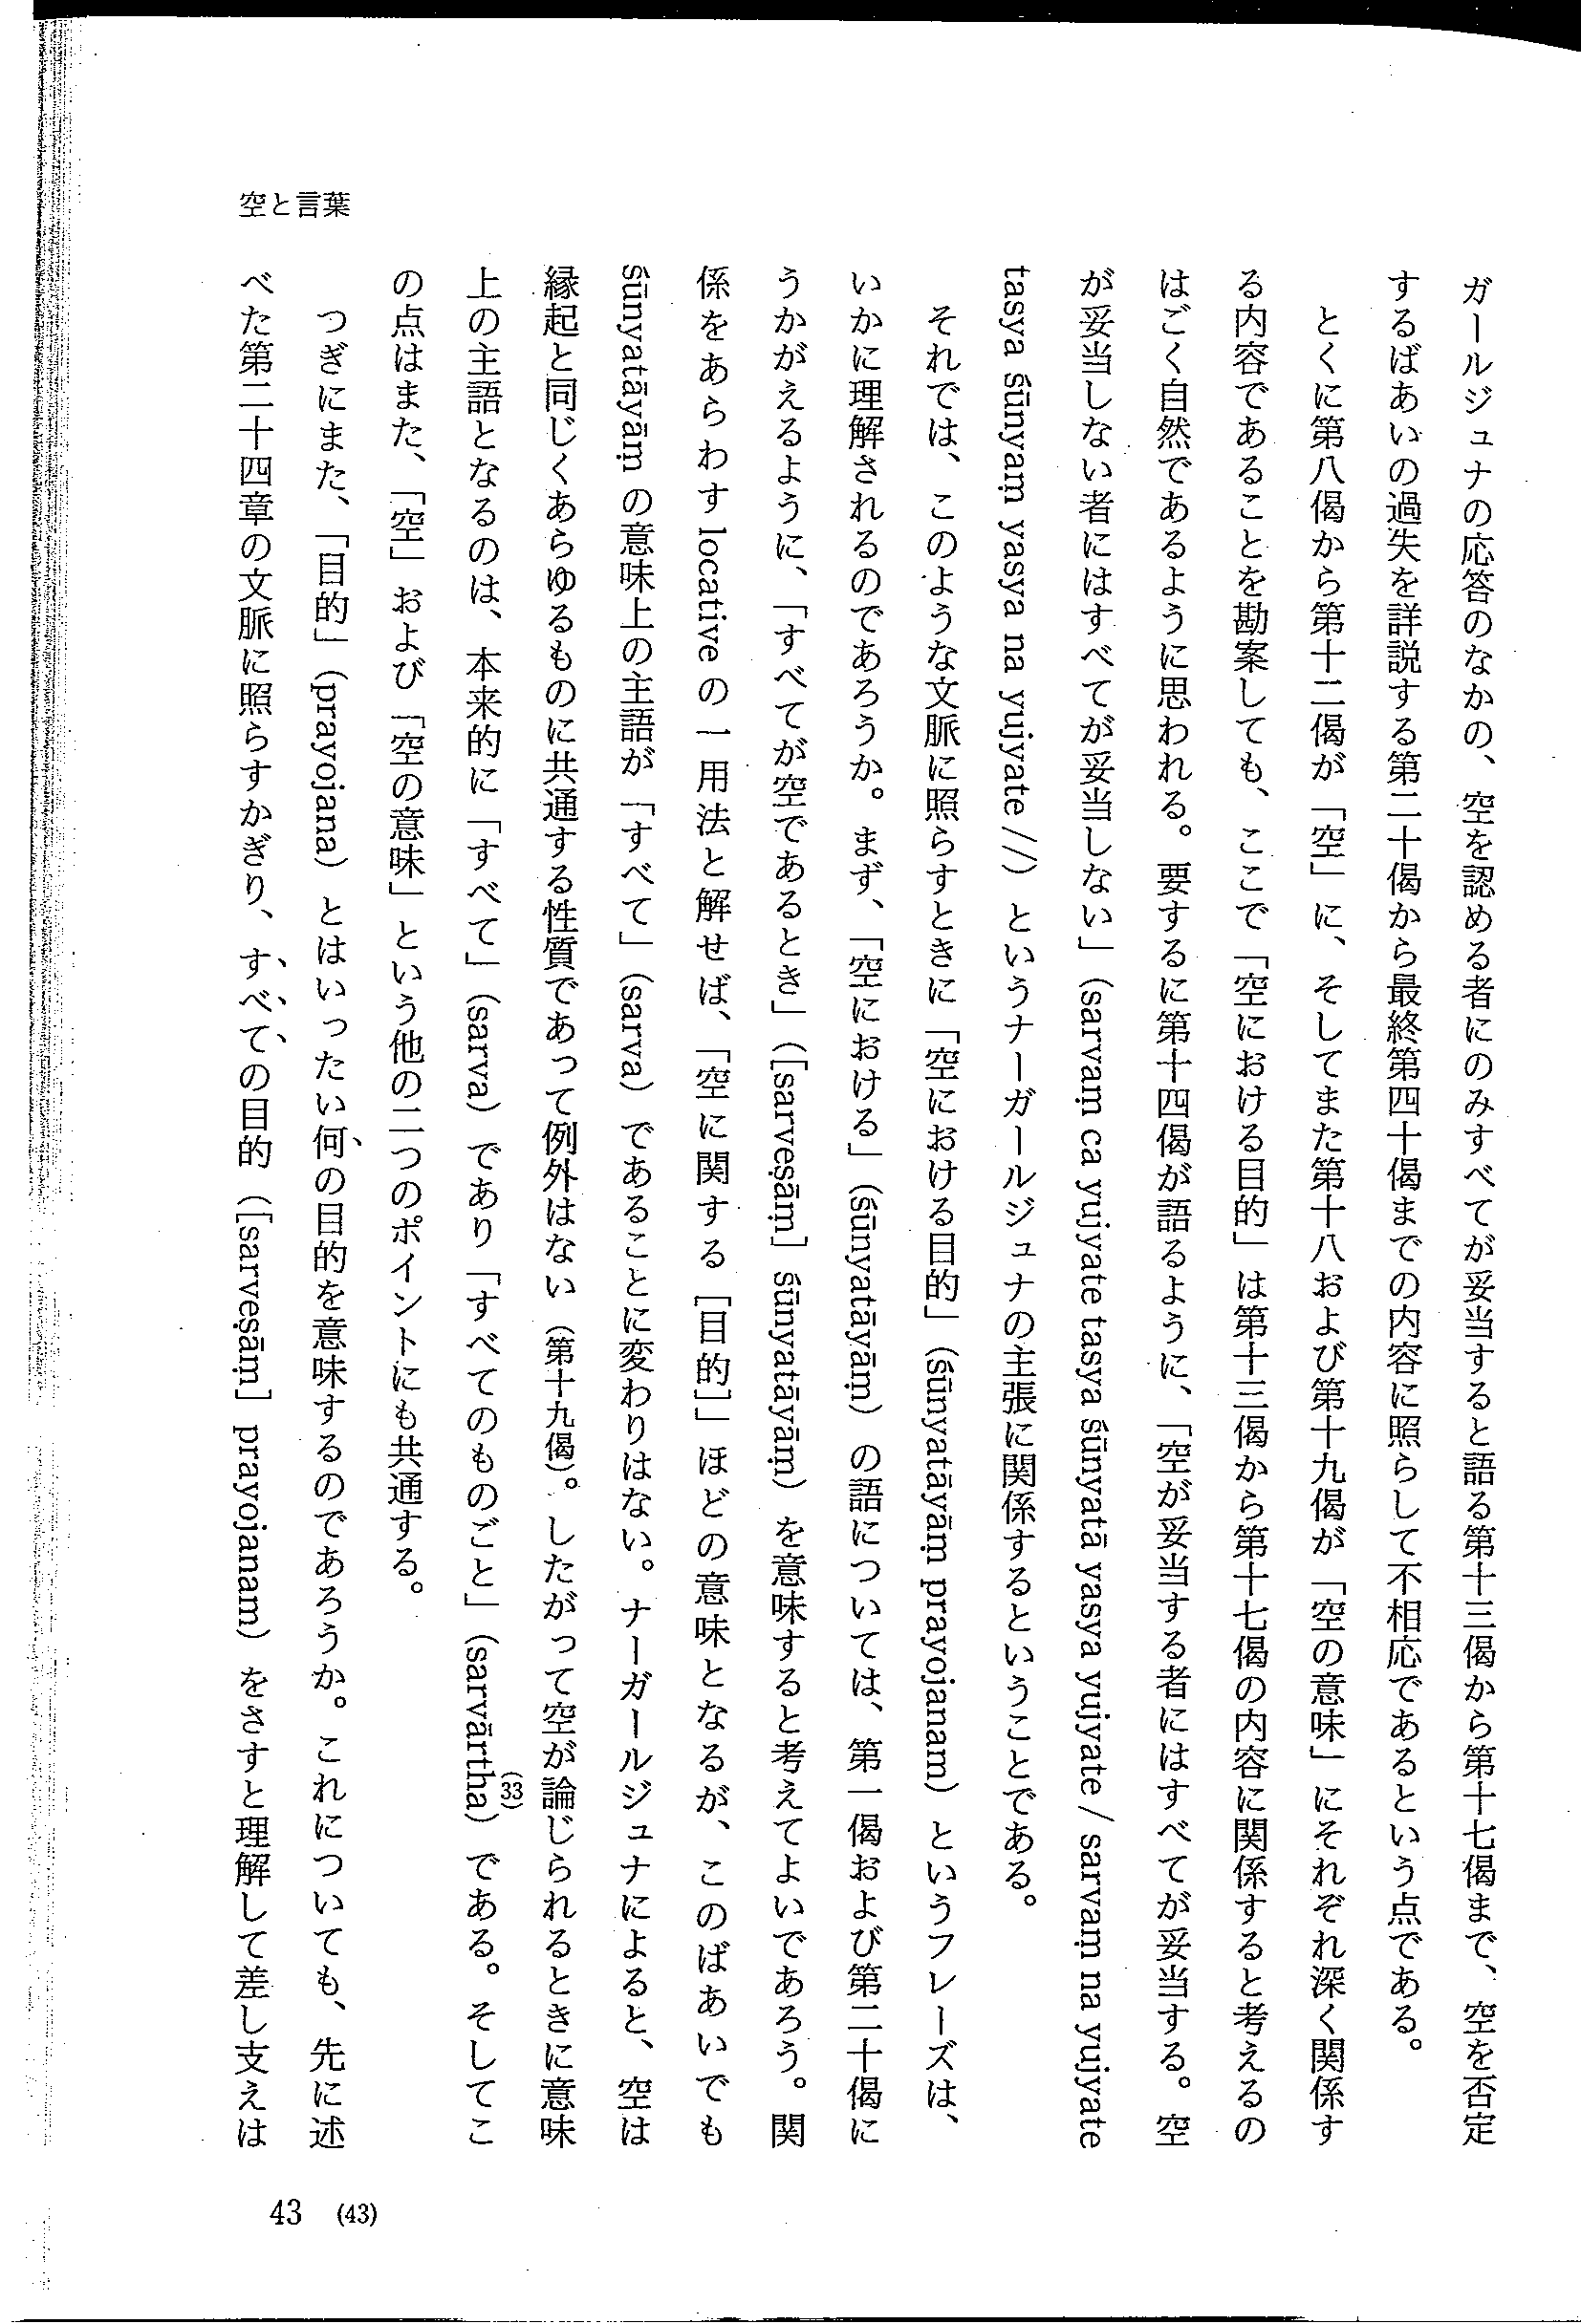 ガールジュナの応答のなかの、空を認める者にのみすべてが妥当すると語る第十三偈から第十七偈まで、空を否定
するばあいの過失を詳説する第二十偈から最終第四十偈までの内容に照らして不相応であるという点である。
とくに第八偈から第十二偈が「空」に、そしてまた第十八および第十九偈が「空の意味」にそれぞれ深く関係す
る内容であることを勘案しても、ここで「空における目的」は第十三偈から第十七偈の内容に関係すると考えるの
はごく自然であるように思われる。要するに第十四偈が語るように、「空が妥当する者にはすべてが妥当する。空
が妥当しない者にはすべてが妥当しない」（sarvaṃ ca yujyate tasya śūnyatā yasya yujyate / sarvaṃ na yujyate
tasya śūnyaṃ yasya na yujyate //）というナーガールジュナの主張に関係するということである。
それでは、このような文脈に照らすときに「空における目的」（śūnyatāyāṃ prayojanam）というフレーズは、
いかに理解されるのであろうか。まず、「空における」（śūnyatāyāṃ）の語については、第一偈および第二十偈に
うかがえるように、「すべてが空であるとき」（[sarveṣāṃ] śūnyatāyāṃ）を意味すると考えてよいであろう。関
係をあらわす locative の一用法と解せば、「空に関する［目的］」ほどの意味となるが、このばあいでも
śūnyatāyāṃ の意味上の主語が「すべて」（sarva）であることに変わりはない。ナーガールジュナによると、空は
縁起と同じくあらゆるものに共通する性質であって例外はない（第十九偈）。したがって空が論じられるときに意味
上の主語となるのは、本来的に「すべて」（sarva）であり「すべてのものごと」（sarvārtha）(33)である。そしてこ
の点はまた、「空」および「空の意味」という他の二つのポイントにも共通する。
つぎにまた、「目的」（prayojana）とはいったい何の目的を意味するのであろうか。これについても、先に述
べた第二十四章の文脈に照らすかぎり、すべての目的（[sarveṣāṃ] prayojanam）をさすと理解して差し支えは
空と言葉
43 (43)